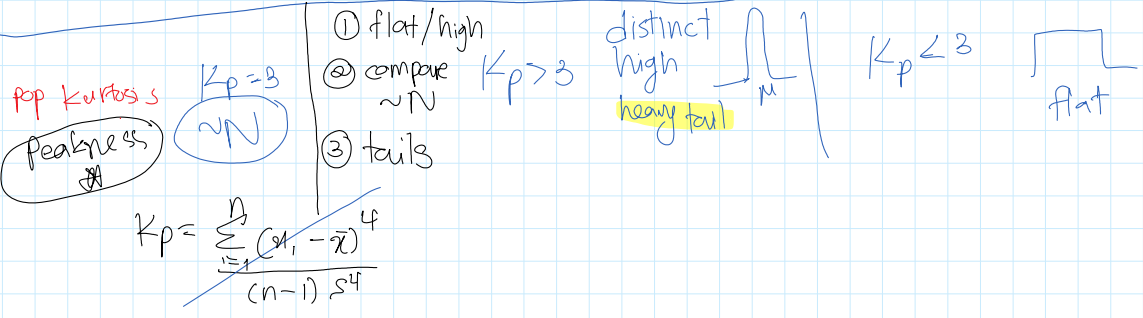 pop kurtosis
Peakness
Kp=3
~N
① flat/high
② compare
~N
③ tails
Kp>3
distinct
high
heavy tail
μ
Kp<3
flat
Kp= n Σ i=1 (x_i - x̄)^4
(n-1) s^4